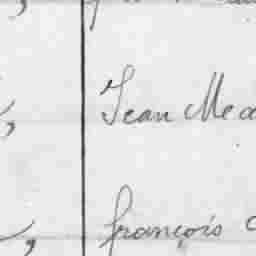 Jean Me
françois